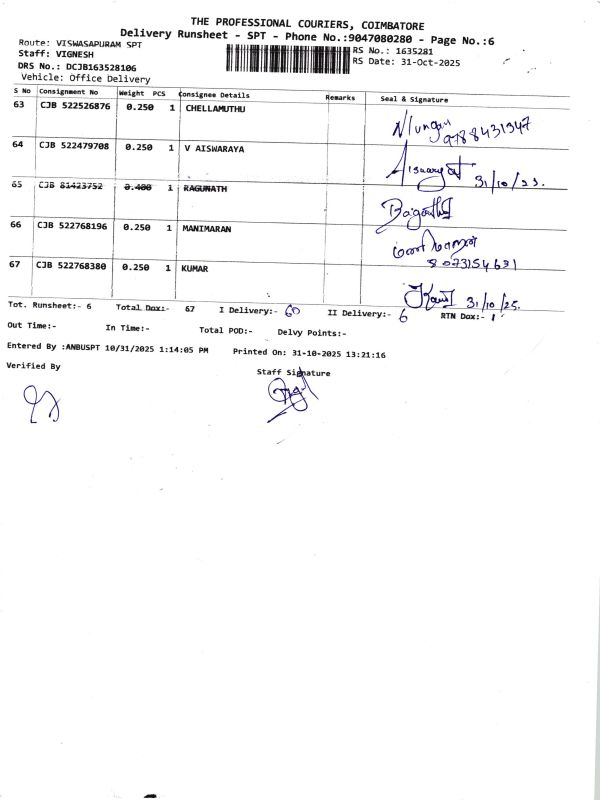 THE PROFESSIONAL COURIERS, COIMBATORE
Delivery Runsheet - SPT - Phone No.:9047080280 - Page No.:6
Route: VISWASAPURAM SPT
Staff: VIGNESH
DRS No.: DCJB163528106
Vehicle: Office Delivery
RS No.: 1635281
RS Date: 31-Oct-2025
S No Consignment No Weight PCS Consignee Details Remarks Seal & Signature
63 CJB 522526876 0.250 1 CHELLAMUTHU
9788431347
64 CJB 522479708 0.250 1 V AISWARAYA
31/10/23.
65 CJB 81423752 0.400 1 RAGUNATH
66 CJB 522768196 0.250 1 MANIMARAN
மணிமாறன்
8073154631
67 CJB 522768380 0.250 1 KUMAR
31/10/25.
Tot. Runsheet:- 6 Total Dox:- 67 I Delivery:- 60 II Delivery:- 6 RTN Dox:- 1
Out Time:- In Time:- Total POD:- Delvy Points:-
Entered By :ANBUSPT 10/31/2025 1:14:05 PM Printed On: 31-10-2025 13:21:16
Verified By Staff Signature